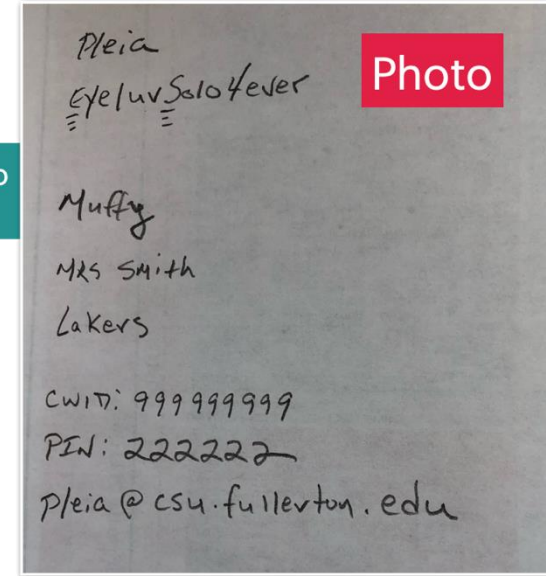 Photo
Pleia
EyeluvSolo4ever
Muffy
MRS Smith
Lakers
CWID: 999999999
PIN: 222222
pleia@csu.fullerton.edu